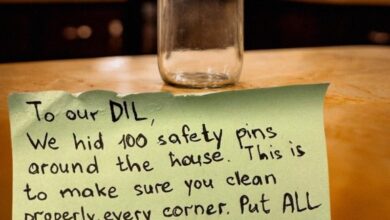 To our DIL,
We hid 100 safety pins
around the house. This is
to make sure you clean
properly every corner. Put ALL